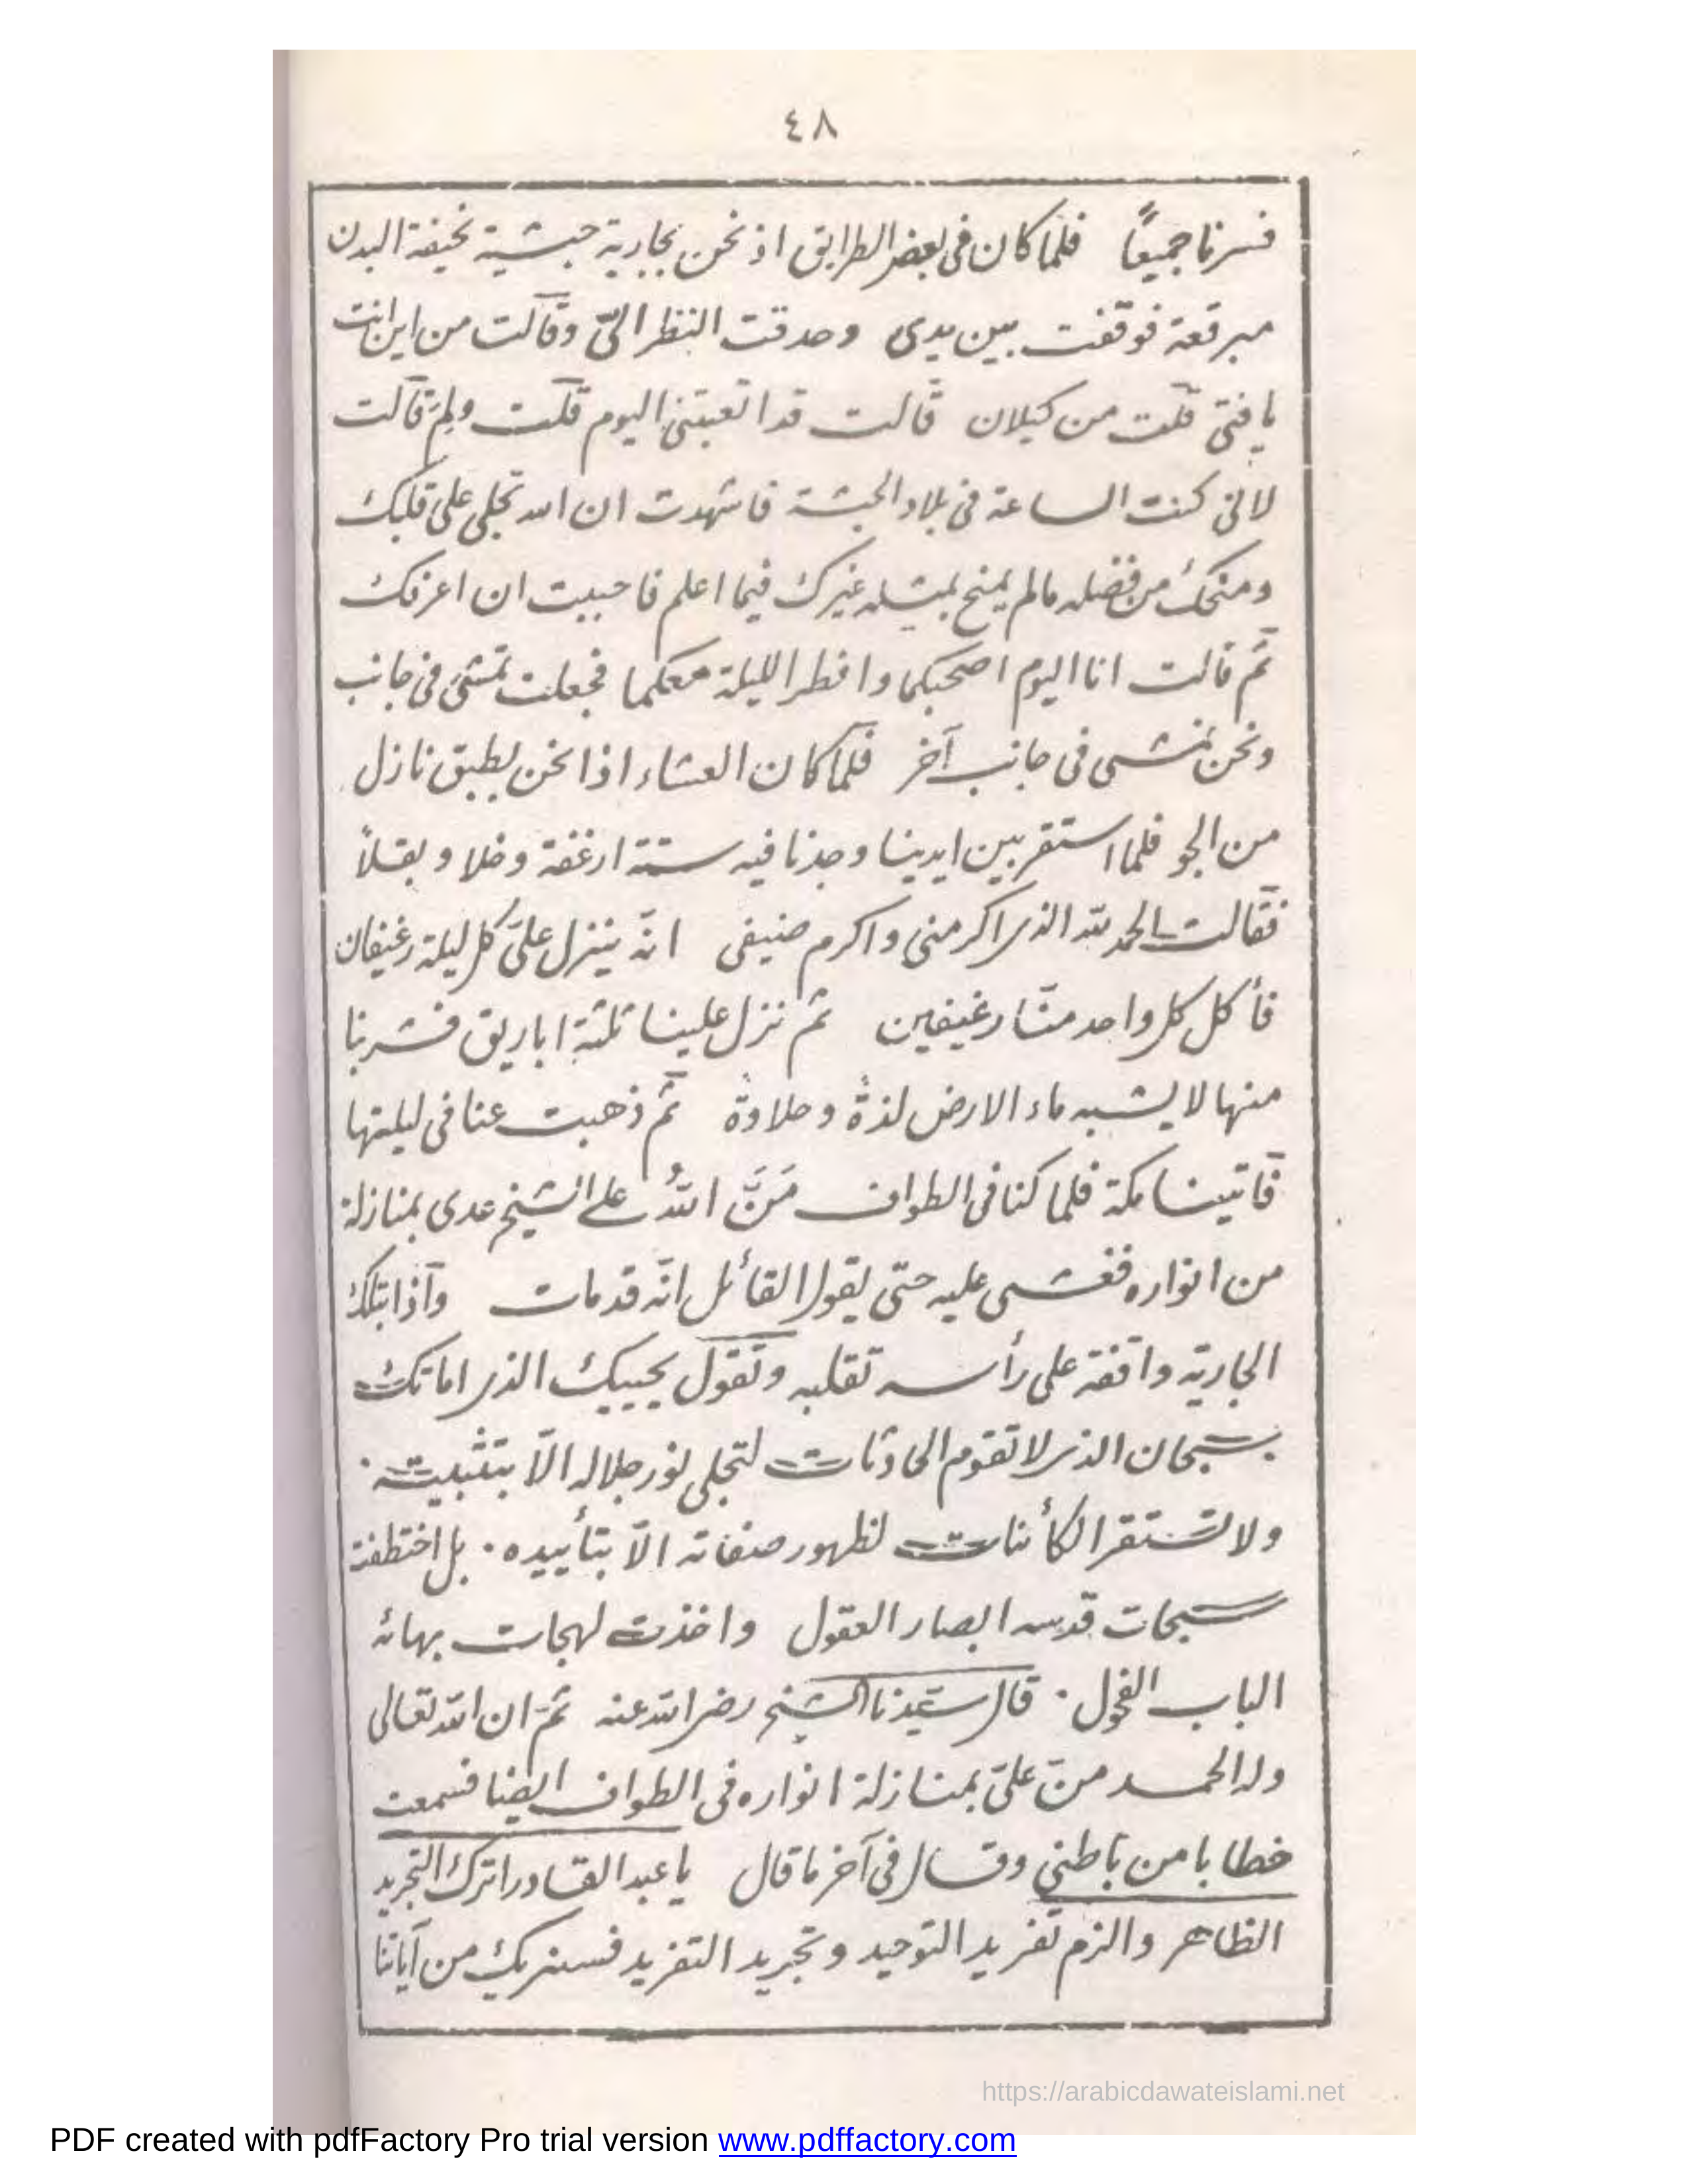 ٤٨
فسرنا جميعًا فلما كان فى بعض الطرايق اذ نحن بجارية حبشية نحيفة البدن
مبرقعة فوقفت بين يدى وحدقت النظر الىّ وقالت من اين انت
يا فتى قلت من كيلان قالت قد اتعبتنى اليوم قلت ولِمَ قالت
لانى كنت الساعة فى بلاد الحبشة فاشهدت ان الله تجلى على قلبك
ومنحك من فضله مالم يمنح بمثله غيرك فيما اعلم فاحببت ان اعرفك
ثم قالت انا اليوم اصحبكما وافطر الليلة معكما فجعلت تمشى فى جانب
ونحن نمشى فى جانب آخر فلما كان العشاء اذا نحن بطبق نازل
من الجو فلما استقر بين ايدينا وجدنا فيه ستة ارغفة وخلا وبقلاً
فقالت الحمد لله الذى اكرمنى واكرم ضيفى انه ينزل علىّ كل ليلة رغيفان
فأكل كل واحد منّا رغيفين ثم نزل علينا ثلثة اباريق فشربنا
منها لا يشبه ماء الارض لذةً وحلاوةً ثم ذهبت عنا فى ليلتها
فاتينا مكة فلما كنا فى الطواف مَنَّ اللهُ على الشيخ عدى بمنازلة
من انواره فغشى عليه حتّى يقول القائل انّه قد مات واذا بتلك
الجارية واقفة على رأسه تقلبه وتقول يحييك الذى اماتك
سبحان الذى لا تقوم الحادثات لتجلى نور جلاله الّا بتثبيته ٠
ولا تستقر الكأئنات لظهور صفاته الّا بتأييده ٠ بل اختطفت
سبحات قدسه ابصار العقول واخذت لهجات بهائه
الباب الفحول ٠ قال سيّدنا الشيخ رضى الله عنه ثم ان الله تعالى
وله الحمد منّ علىّ بمنازلة انواره فى الطواف ايضا فسمعت
خطابا من باطني وقال فى آخر ما قال يا عبد القادر اترك التجريد
الظاهر والزم تفريد التوحيد وتجريد التفريد فسنريك من آياتنا
https://arabicdawateislami.net
PDF created with pdfFactory Pro trial version www.pdffactory.com